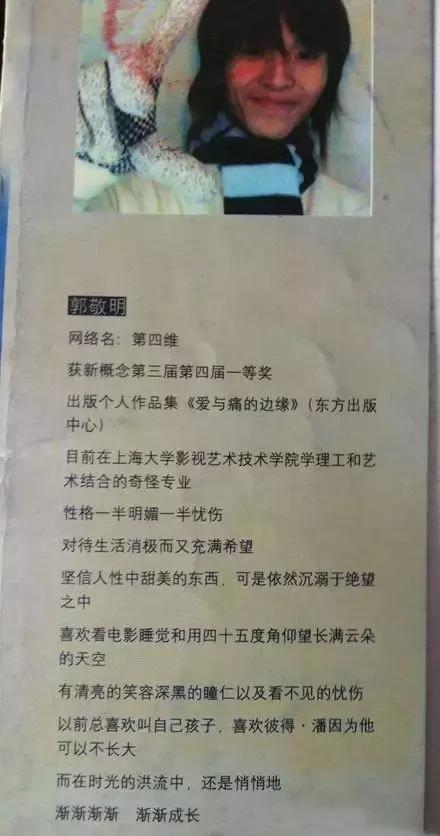 郭敬明
网络名：第四维
获新概念第三届第四届一等奖
出版个人作品集《爱与痛的边缘》（东方出版
中心）
目前在上海大学影视艺术技术学院学理工和艺
术结合的奇怪专业
性格一半明媚一半忧伤
对待生活消极而又充满希望
坚信人性中甜美的东西，可是依然沉溺于绝望
之中
喜欢看电影睡觉和用四十五度角仰望长满云朵
的天空
有清亮的笑容深黑的瞳仁以及看不见的忧伤
以前总喜欢叫自己孩子，喜欢彼得·潘因为他
可以不长大
而在时光的洪流中，还是悄悄地
渐渐渐渐　渐渐成长